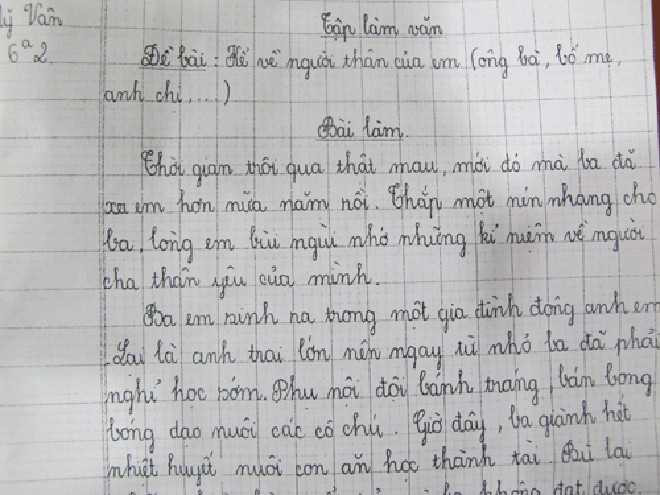 lý Vân
6ᵃ2
Tập làm văn
Đề bài : Kể về người thân của em (ông bà, bố mẹ,
anh chị,...)
Bài làm.
Thời gian trôi qua thật mau, mới đó mà ba đã
xa em hơn nữa năm rồi. Thắp một nén nhang cho
ba, lòng em bùi ngùi nhớ những kỉ niệm về người
cha thân yêu của mình.
Ba em sinh ra trong một gia đình đông anh em
Lại là anh trai lớn nên ngay từ nhỏ ba đã phải
nghỉ học sớm. Phụ nội đội bánh tráng, bán bong
bóng dạo nuôi các cô chú. Giờ đây, ba giành hết
nhiệt huyết nuôi con ăn học thành tài.
không đạt được